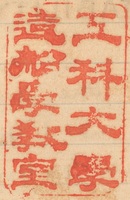 工科大學
造船學教室